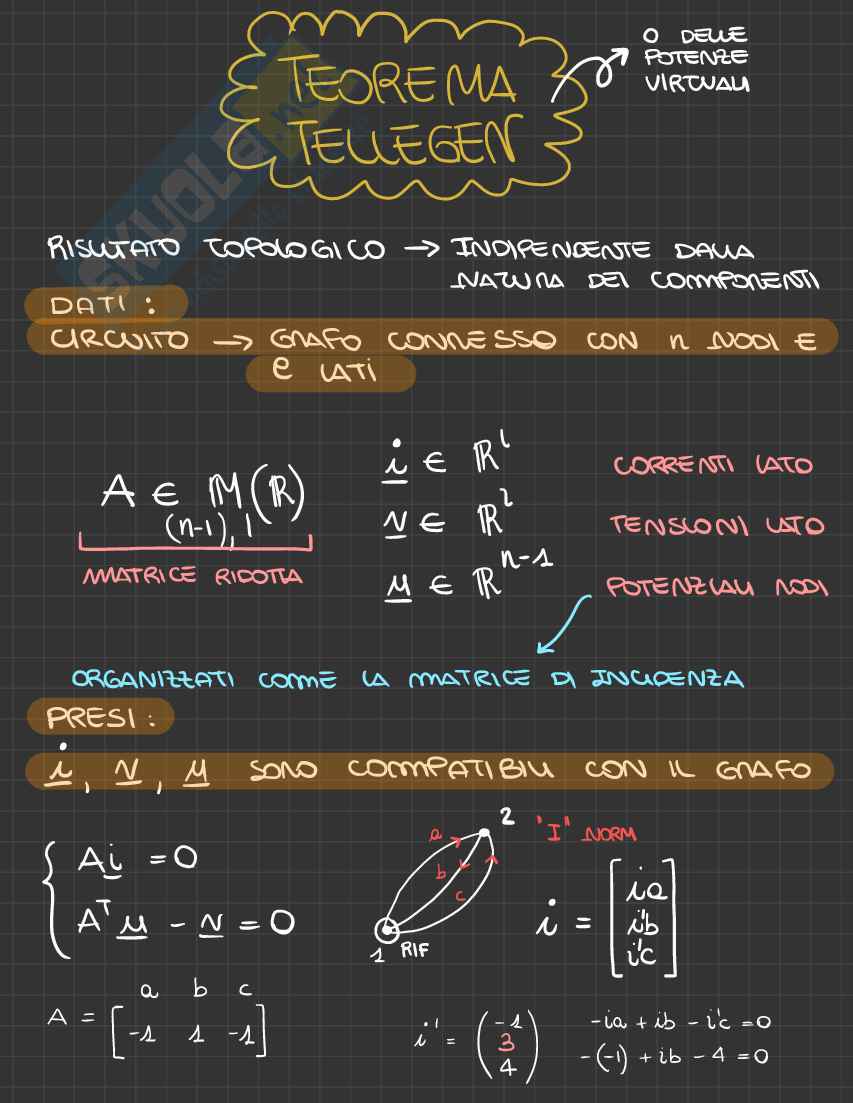 TEOREMA
TELLEGEN
O DELLE
POTENZE
VIRTUALI
SKUOLA.net
RISULTATO TOPOLOGICO → INDIPENDENTE DALLA
NATURA DEI COMPONENTI
DATI:
CIRCUITO → GRAFO CONNESSO CON n NODI E
e LATI
A ∈ M(ℝ)
(n-1), l
MATRICE RIDOTTA
i ∈ ℝˡ CORRENTI LATO
v ∈ ℝˡ TENSIONI LATO
u ∈ ℝⁿ⁻¹ POTENZIALI NODI
ORGANIZZATI COME LA MATRICE DI INCIDENZA
PRESI:
i, v, u SONO COMPATIBILI CON IL GRAFO
Ai = 0
Aᵀ u - v = 0
a
b
c
2
1 RIF
"I" NORM
i = [ia
ib
ic]
a b c
A = [-1 1 -1]
i' = (-1
3
4)
-ia + ib - ic = 0
-(-1) + ib - 4 = 0